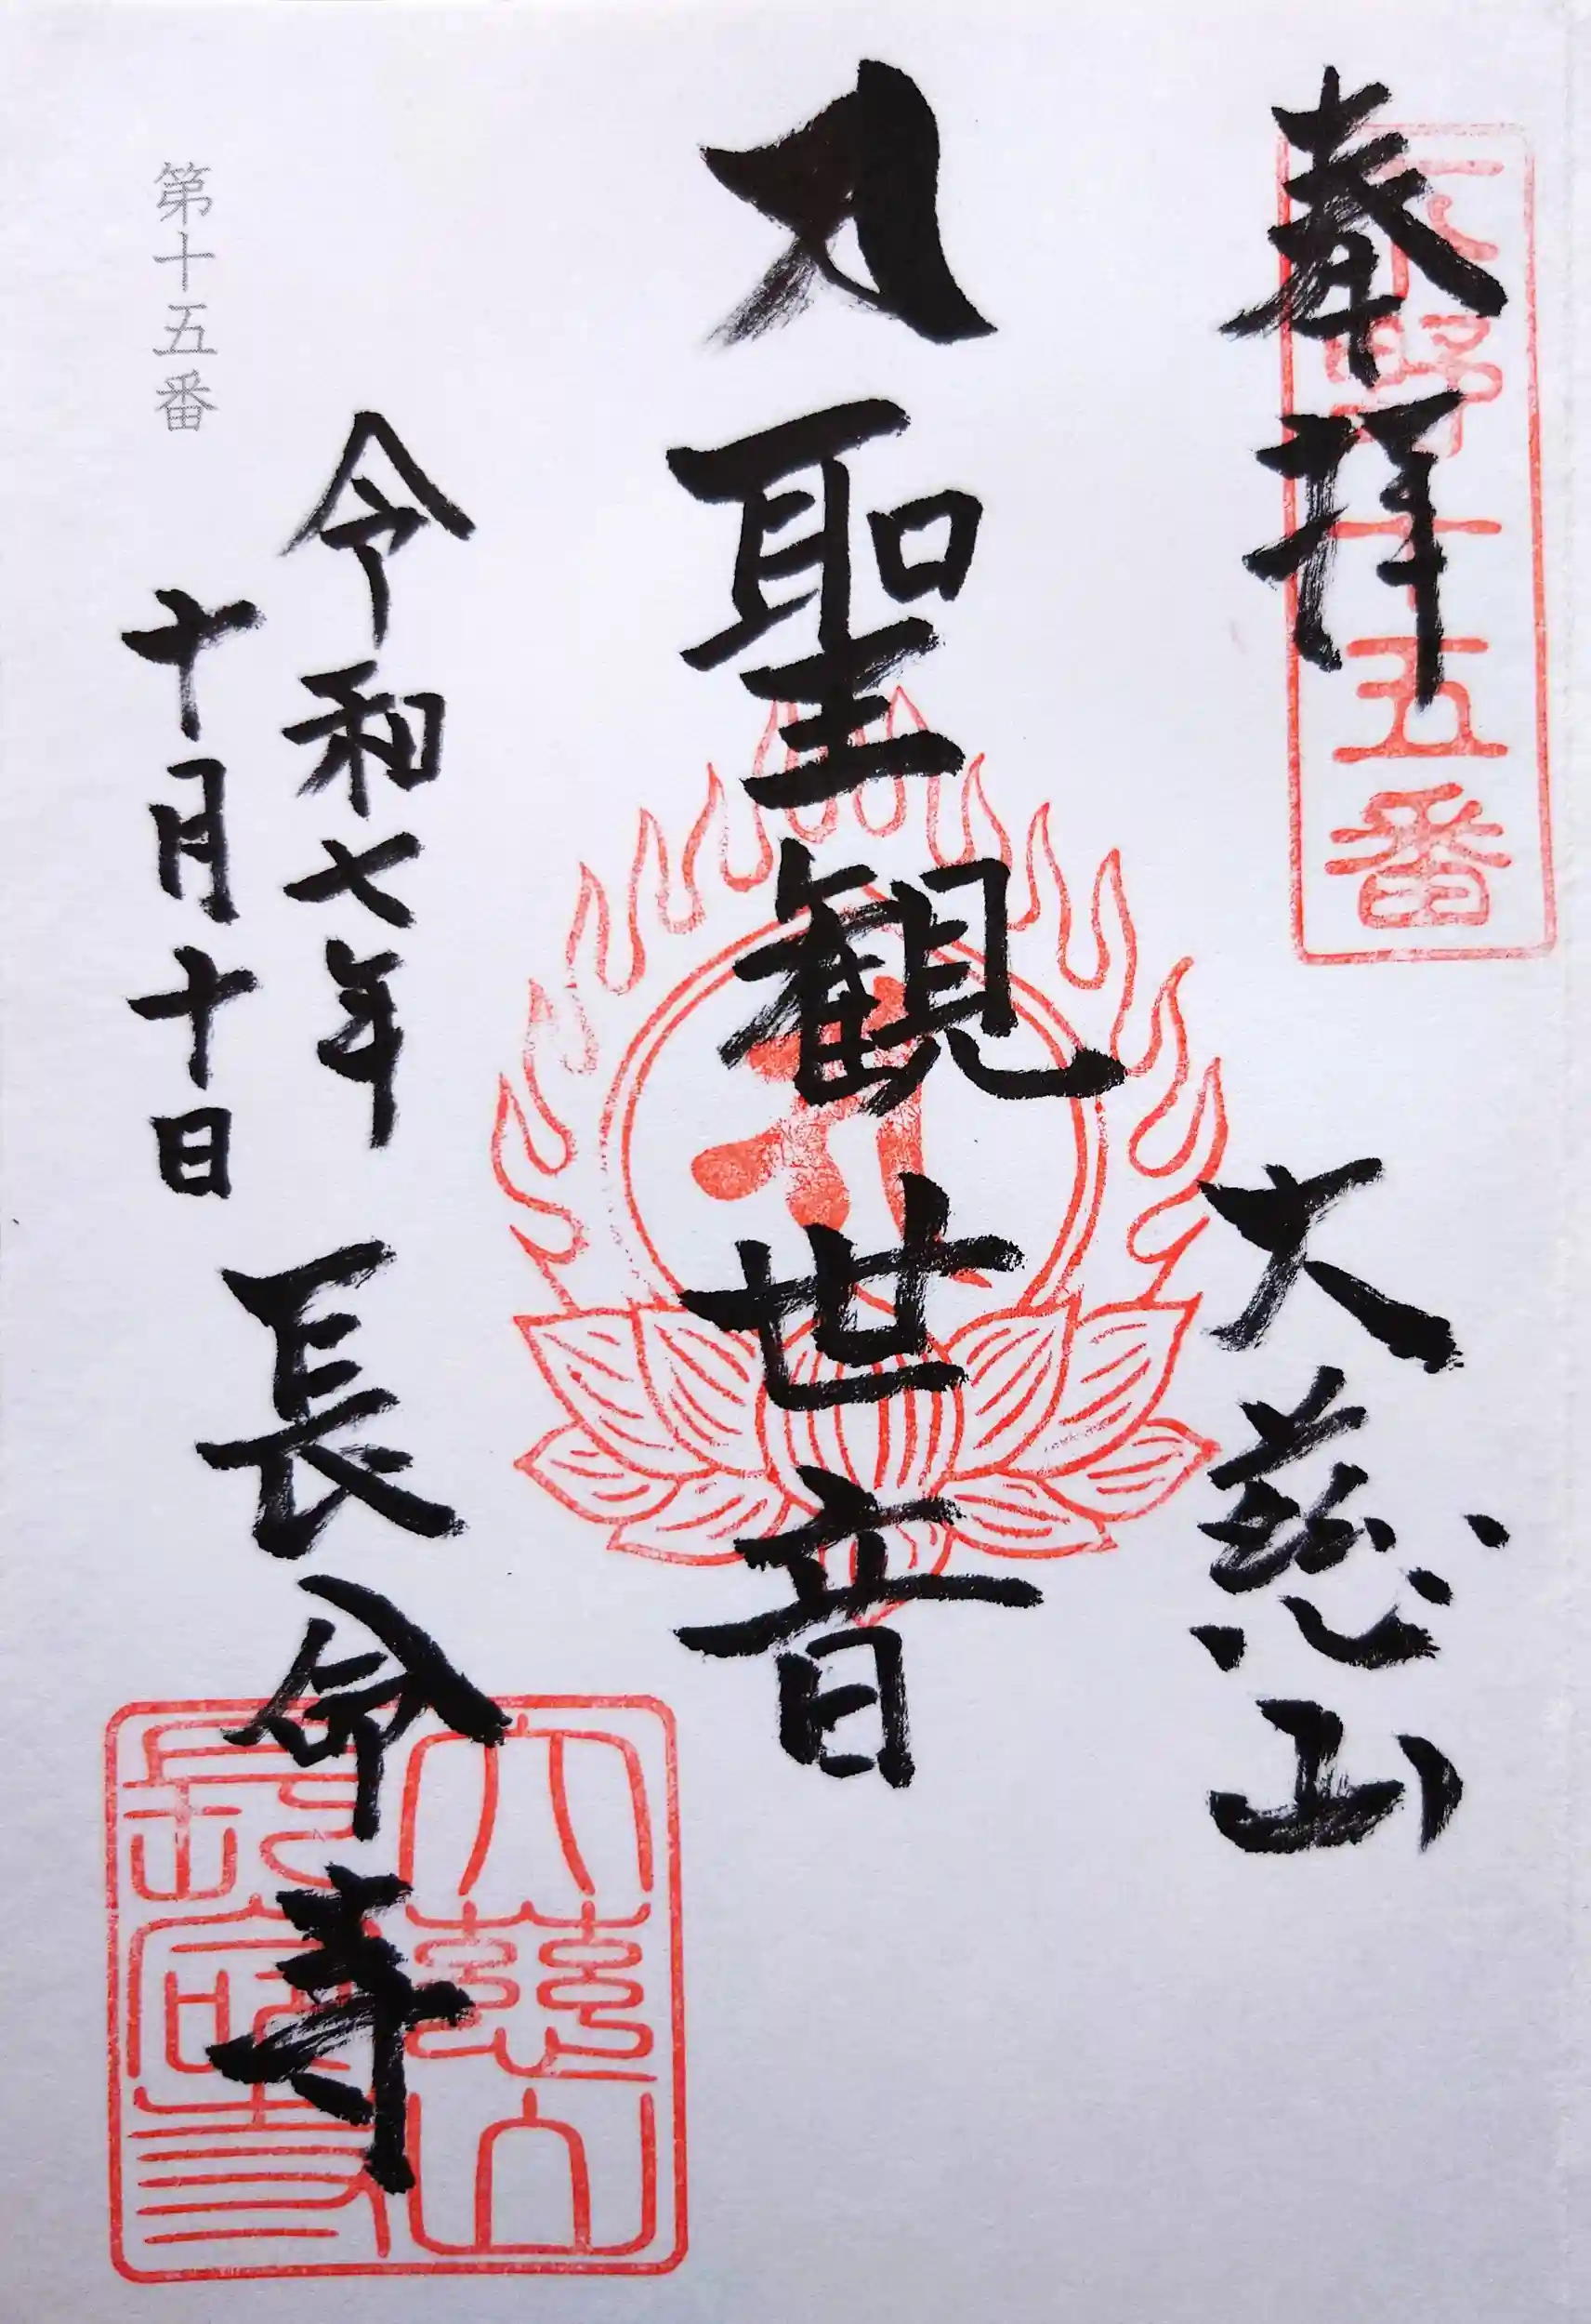 奉拝 大慈山
下野十五番
聖観世音
令和七年
十月十日
長命寺
第十五番
大慈山
長命寺